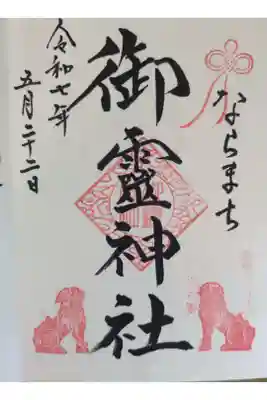 ならまち
御靈神社
令和七年
五月二十二日